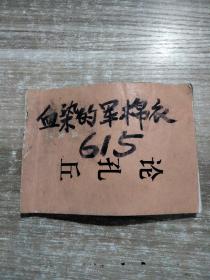 血染的军棉衣
615
论孔丘